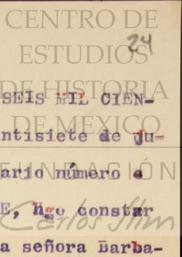 CENTRO DE
24
ESTUDIOS
SEIS MIL CIEN-
DE HISTORIA
DE MEXICO
ntisiete de ju-
FUNDACIÓN
ario número
E, hago constar
Carlos Slim
a señora Barba-